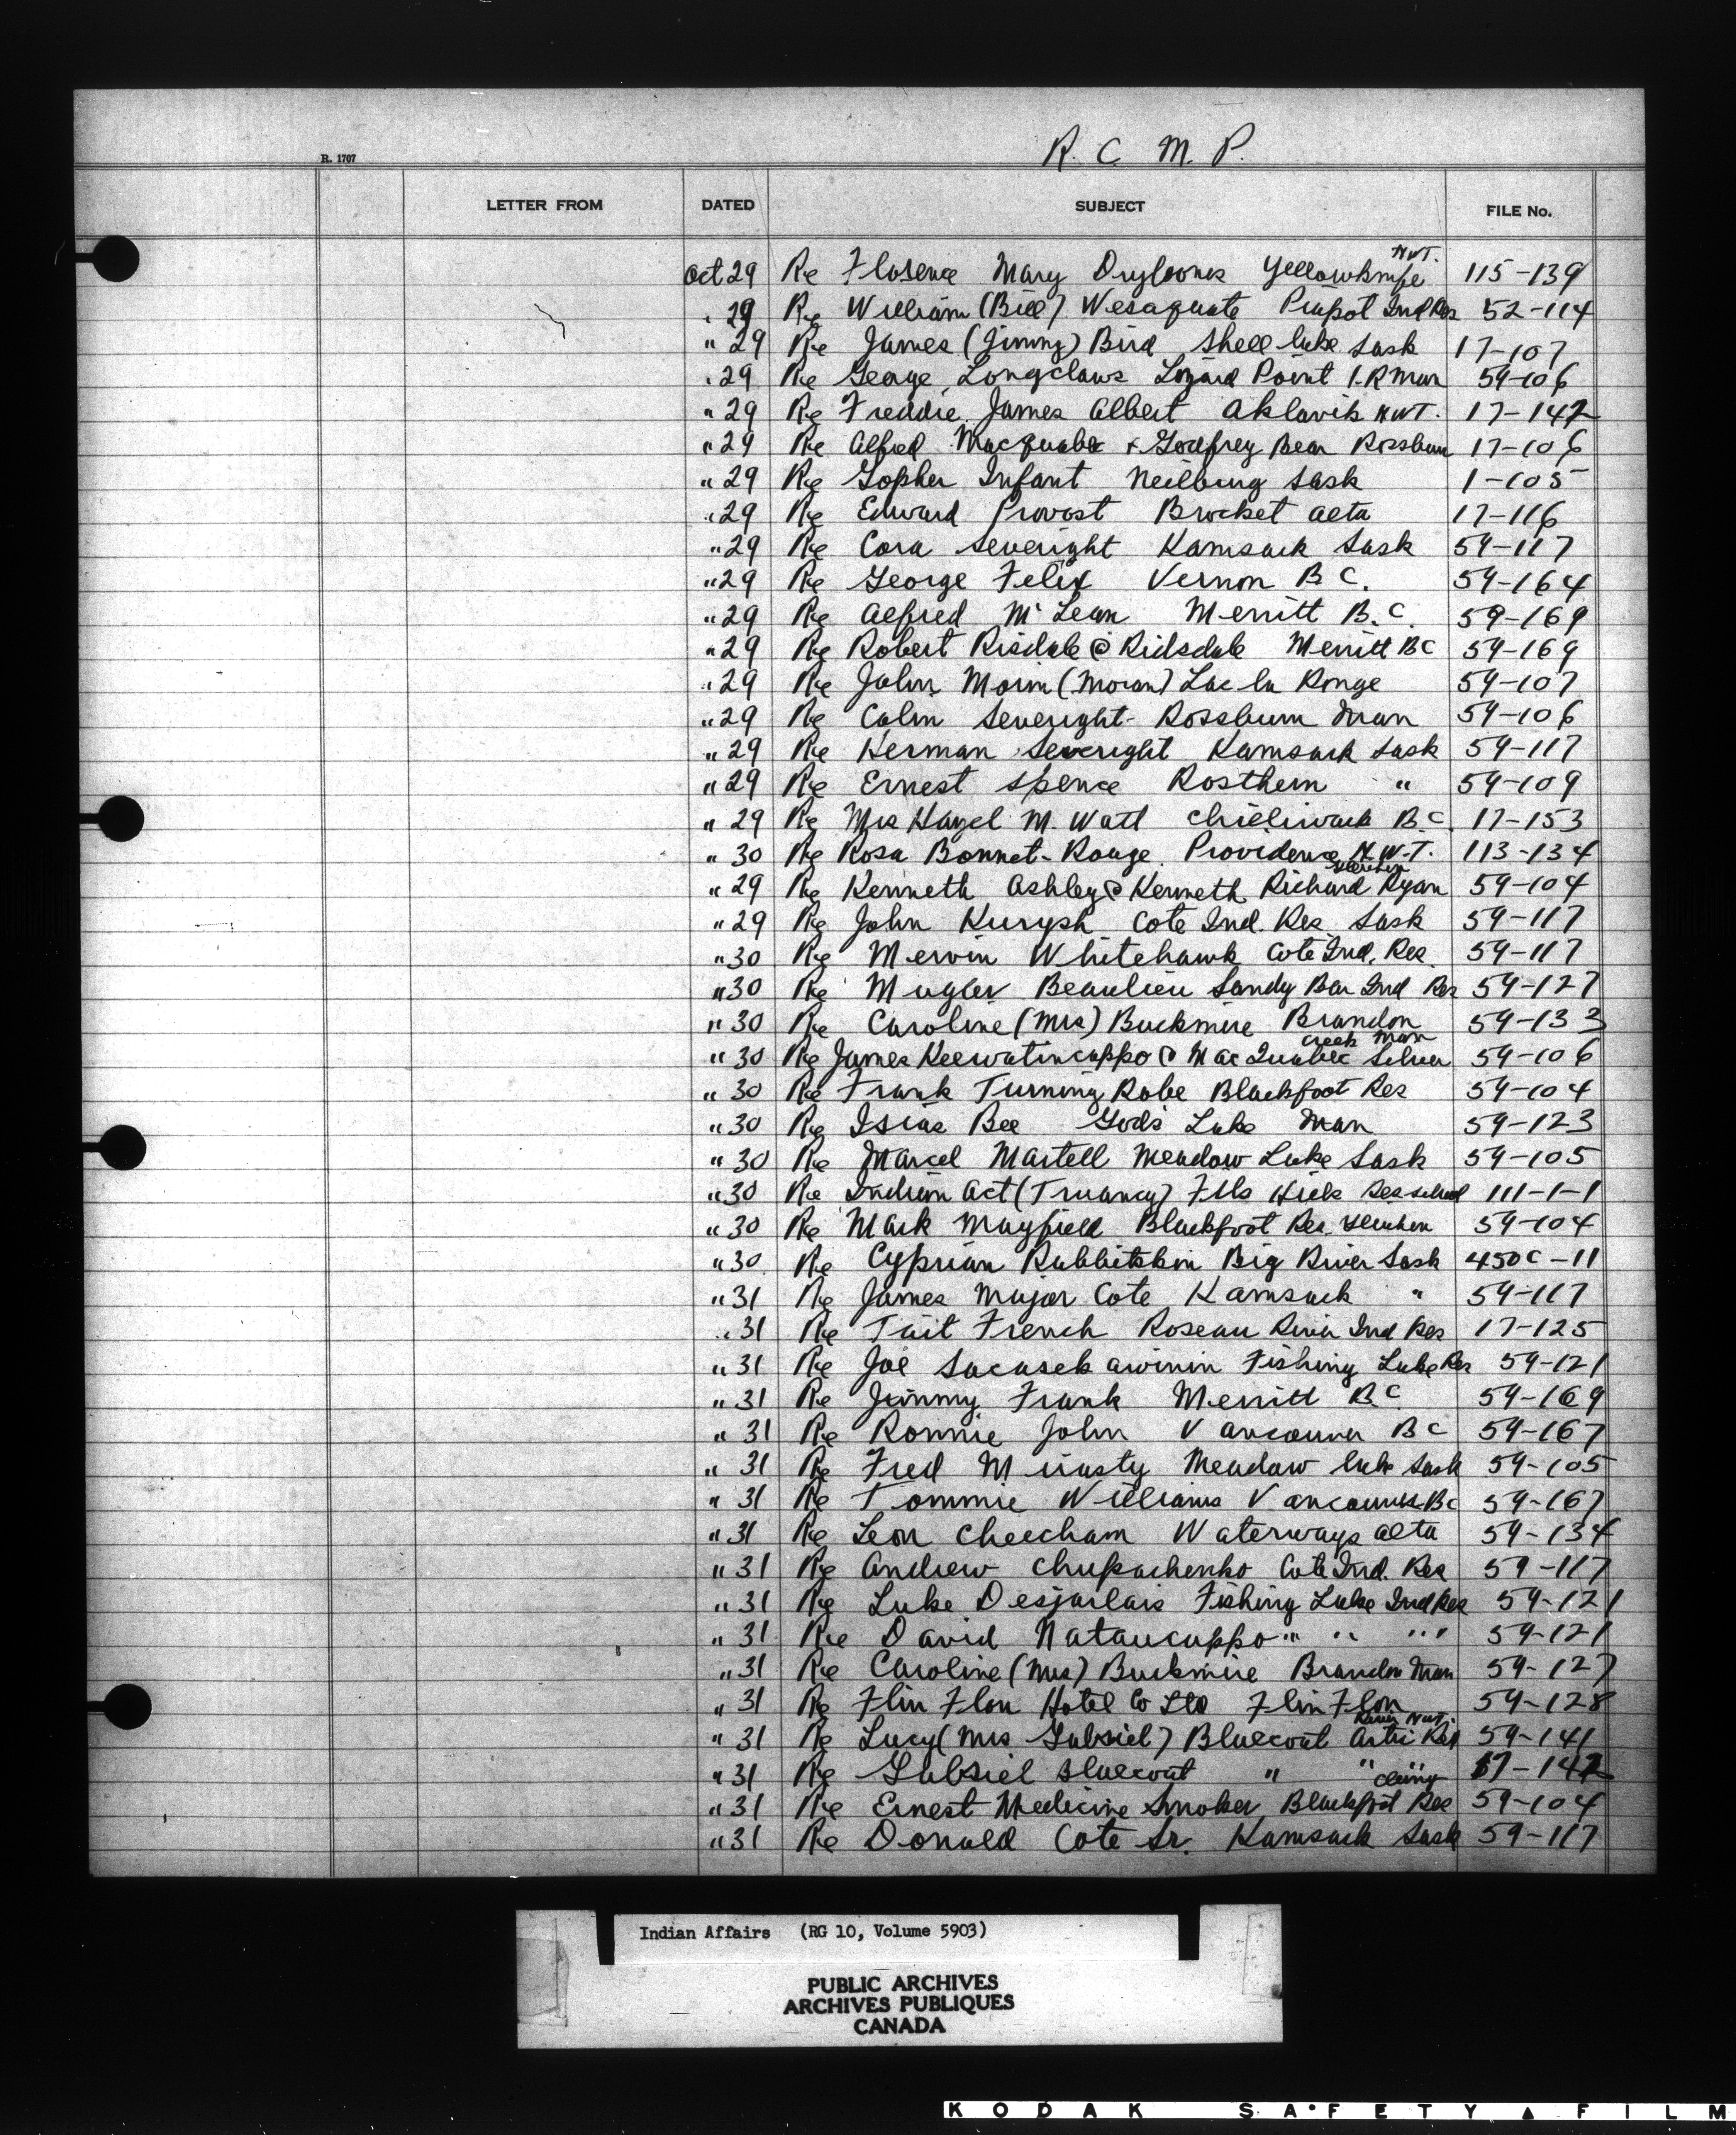 R. C. M. P.
R. 1707
LETTER FROM DATED SUBJECT FILE No.
N.W.T.
Oct 29 Re Florence Mary Drybones Yellowknife 115-139
" 29 Re William (Bill) Wesaquate Piapot Ind Res 52-114
" 29 Re James (Jimmy) Bird Shell Lake Sask 17-107
" 29 Re George Longclaws Lizard Point I.R Man 54-106
" 29 Re Freddie James Albert Aklavik NWT. 17-142
" 29 Re Alfred Macquabe & Godfrey Bear Rossburn 17-106
" 29 Re Gopher Infant Neilburg Sask 1-105
" 29 Re Edward Provost Brocket Alta 17-116
" 29 Re Cora Severight Kamsack Sask 54-117
" 29 Re George Felix Vernon B C. 54-164
" 29 Re Alfred McLean Merritt B.C. 54-169
" 29 Re Robert Risdale @ Ridsdale Merritt BC 54-169
" 29 Re John Morin (Moran) Lac la Ronge 54-107
" 29 Re Colin Severight Rossburn Man 54-106
" 29 Re Herman Severight Kamsack Sask 54-117
" 29 Re Ernest Spence Rosthern " 54-109
" 29 Re Mrs Hazel M. Watt Chilliwack B.C. 17-153
" 30 Re Rosa Bonnet-Rouge Providence N.W.T. 113-134
Gleichen
" 29 Re Kenneth Ashley @ Kenneth Richard Ryan 54-104
" 29 Re John Kurysh Cote Ind. Res Sask 54-117
" 30 Re Mervin Whitehawk Cote Ind. Res 54-117
" 30 Re Beaulieu Sandy Bar Ind Res 54-127
" 30 Re Caroline (Mrs) Buckmire Brandon 54-133
Creek Man
" 30 Re James Keewatincappo @ MacQuabee Silver 54-106
" 30 Re Frank Turning Robe Blackfoot Res 54-104
" 30 Re Isias Bee Gods Lake Man 54-123
" 30 Re Marcel Martell Meadow Lake Sask 54-105
" 30 Re Indian Act (Truancy) File Hills Res School 111-1-1
" 30 Re Mark Mayfield Blackfoot Res. Gleichen 54-104
" 30 Re Cyprian Rabbitskin Big River Sask 450C-11
" 31 Re James Major Cote Kamsack " 54-117
" 31 Re Tait French Roseau River Ind Res 17-125
" 31 Re Joe Sacasekawinin Fishing Lake Res 54-121
" 31 Re Jimmy Frank Merritt B.C. 54-169
" 31 Re Ronnie John Vancouver BC 54-167
" 31 Re Fred Mirasty Meadow Lake Sask 54-105
" 31 Re Tommie Williams Vancouver BC 54-167
" 31 Re Leon Cheecham Waterways Alta 54-134
" 31 Re Andrew Chupachenko Cote Ind. Res 54-117
" 31 Re Luke Desjarlais Fishing Lake Ind Res 54-121
" 31 Re David Nataucappo " " " 54-121
" 31 Re Caroline (Mrs) Buckmire Brandon Man 54-127
" 31 Re Flin Flon Hotel Co Ltd Flin Flon 54-128
River NWT.
" 31 Re Lucy (Mrs Gabriel) Bluecoat Artic Red 54-141
" 31 Re Gabriel Bluecoat " " " 17-142
Cluny
" 31 Re Ernest Medicine Smoker Blackfoot Res 54-104
" 31 Re Donald Cote Sr. Kamsack Sask 54-117
Indian Affairs (RG 10, Volume 5903)
PUBLIC ARCHIVES
ARCHIVES PUBLIQUES
CANADA
KODAK SAFETY FILM